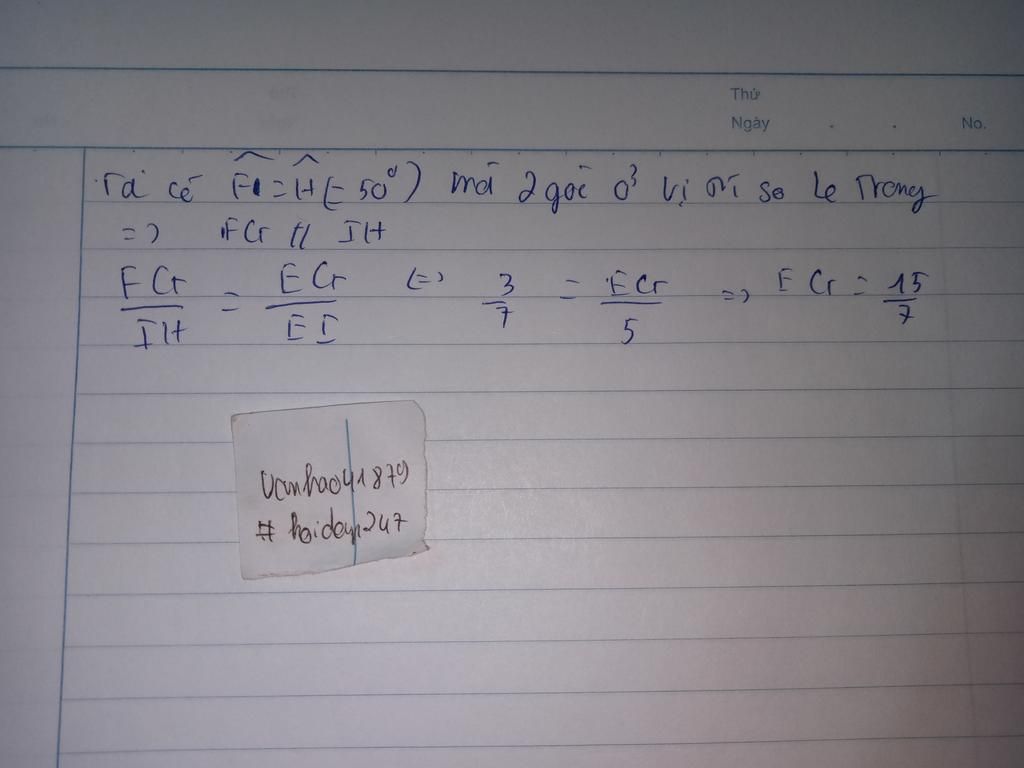 Thứ
Ngày . . No.
Ta có F̂ = Ĥ (= 50°) mà 2 góc ở vị trí so le trong
=> FG // IH
FG/IH = EG/EI <=> 3/7 = EG/5 => EG = 15/7
vanhao41879
# hoidap247